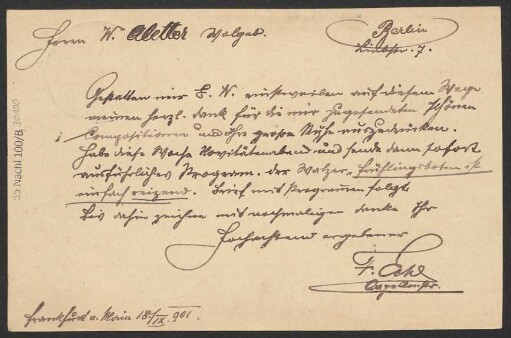 Herrn W. Aletter Wolgeb.
Berlin
Lindstr. 7.
Gestatten mir E. W. einstweilen auf diesem Wege
meinen herzl. dank für die mir zugesendeten schönen
Compositionen und Ihre große Mühe auszudrücken.
Habe diese Woche Novitätenabend und sende dann sofort
ausführliches Programm. der Walzer, Frühlingsboten ist
einfach reizend. Brief mit Programm folgt
bis dahin zeichne mit nochmaligen danke Ihr
Hochachtend ergebener
F.
Capellmstr.
Frankfurt a. Main 18/IX. 901.
55 Nachl 100/B